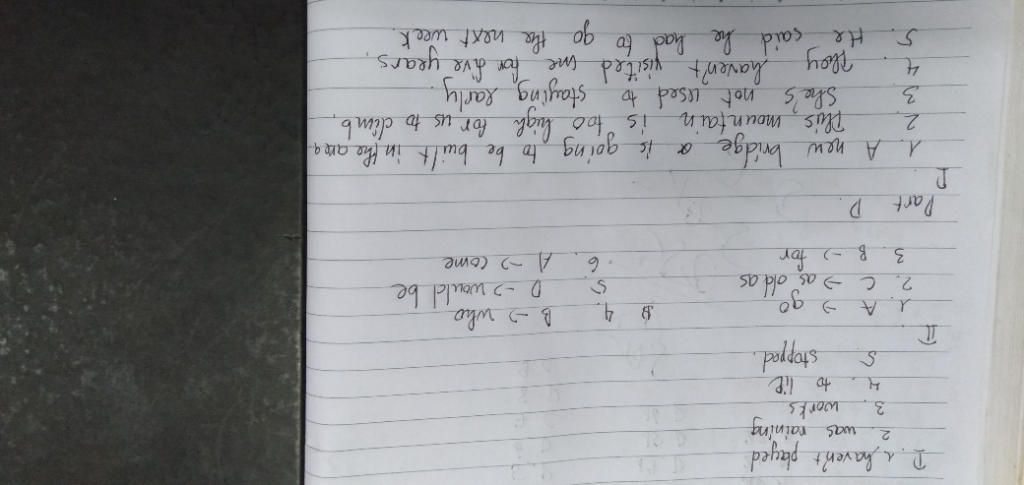 I. 1. haven't played
2. was raining
3. works
4. to lie
5. stopped.
II
1. A → go 4. B → who
2. C → as old as 5. D → would be
3. B → for 6. A → come
Part D
I
1. A new bridge is going to be built in the area
2. This mountain is too high for us to climb.
3 She's not used to staying early.
4 They haven't visited me for five years.
5. He said he had to go the next week.